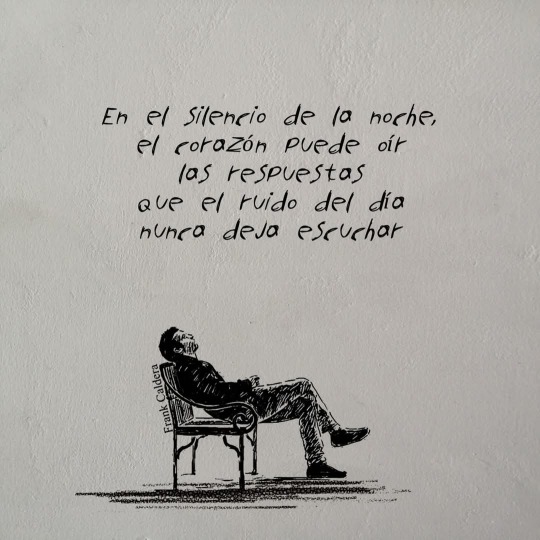 En el silencio de la noche,
el corazón puede oír
las respuestas
que el ruido del día
nunca deja escuchar
Frank Caldera